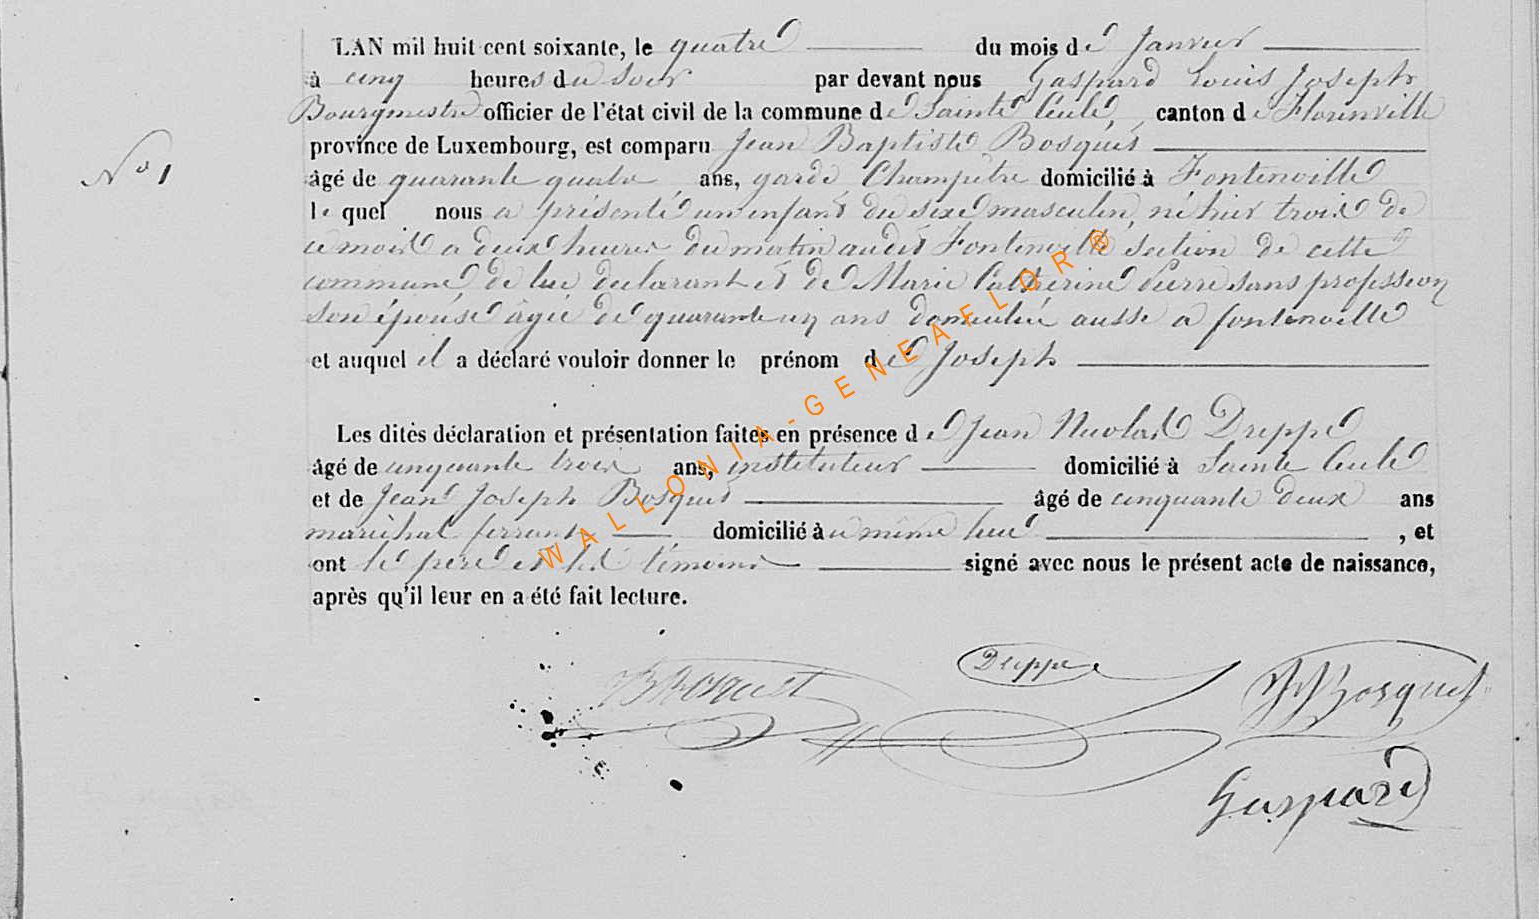 LAN mil huit cent soixante, le quatre du mois de Janvier
à cinq heures du soir par devant nous Gaspard Louis Joseph
Bourgmestre officier de l'état civil de la commune de Sainte Cécile, canton de Florenville
province de Luxembourg, est comparu Jean Baptiste Bosquet
N° 1
âgé de quarante quatre ans, garde Champêtre domicilié à Fontenoille
le quel nous a présenté un enfant du sexe masculin, né hier trois de
ce mois a deux heures du matin audit Fontenoille section de cette
commune de lui declarant et de Marie Catherine Pierre sans profession
son épouse âgée de quarante un ans domiciliée aussi a fontenoille
et auquel il a déclaré vouloir donner le prénom de Joseph
Les dites déclaration et présentation faites en présence de Jean Nicolas Dreppe
âgé de cinquante trois ans, instituteur domicilié à Sainte Cécile
et de Jean Joseph Bosquet âgé de cinquante deux ans
maréchal ferrant domicilié à u même lieu , et
ont le père et les témoins signé avec nous le présent acte de naissance,
après qu'il leur en a été fait lecture.
WALLONIA-GENEAFLOR®
JBBosquet Dreppe JJBosquet
Gaspard